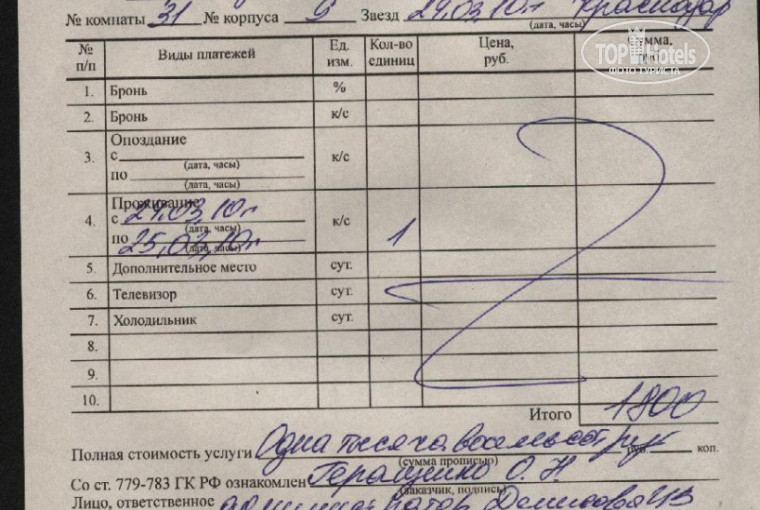 № комнаты 31 № корпуса 9 Заезд 24.03.10г Краснодар
(дата, часы)
TOP Hotels
ФОТО ТУРИСТА
№ п/п Виды платежей Ед. изм. Кол-во единиц Цена, руб. Сумма,
1. Бронь %
2. Бронь к/с
3. Опоздание к/с
с
(дата, часы)
по
(дата, часы)
4. Проживание к/с 1
с 24.03.10г
(дата, часы)
по 25.03.10г
(дата, часы)
5. Дополнительное место сут.
6. Телевизор сут.
7. Холодильник сут.
8.
9.
10.
Итого 1800
Полная стоимость услуги Одна тысяча восемьсот руб руб. коп.
(сумма прописью)
Со ст. 779-783 ГК РФ ознакомлен О. Н
(заказчик, подпись)
Лицо, ответственное администратор